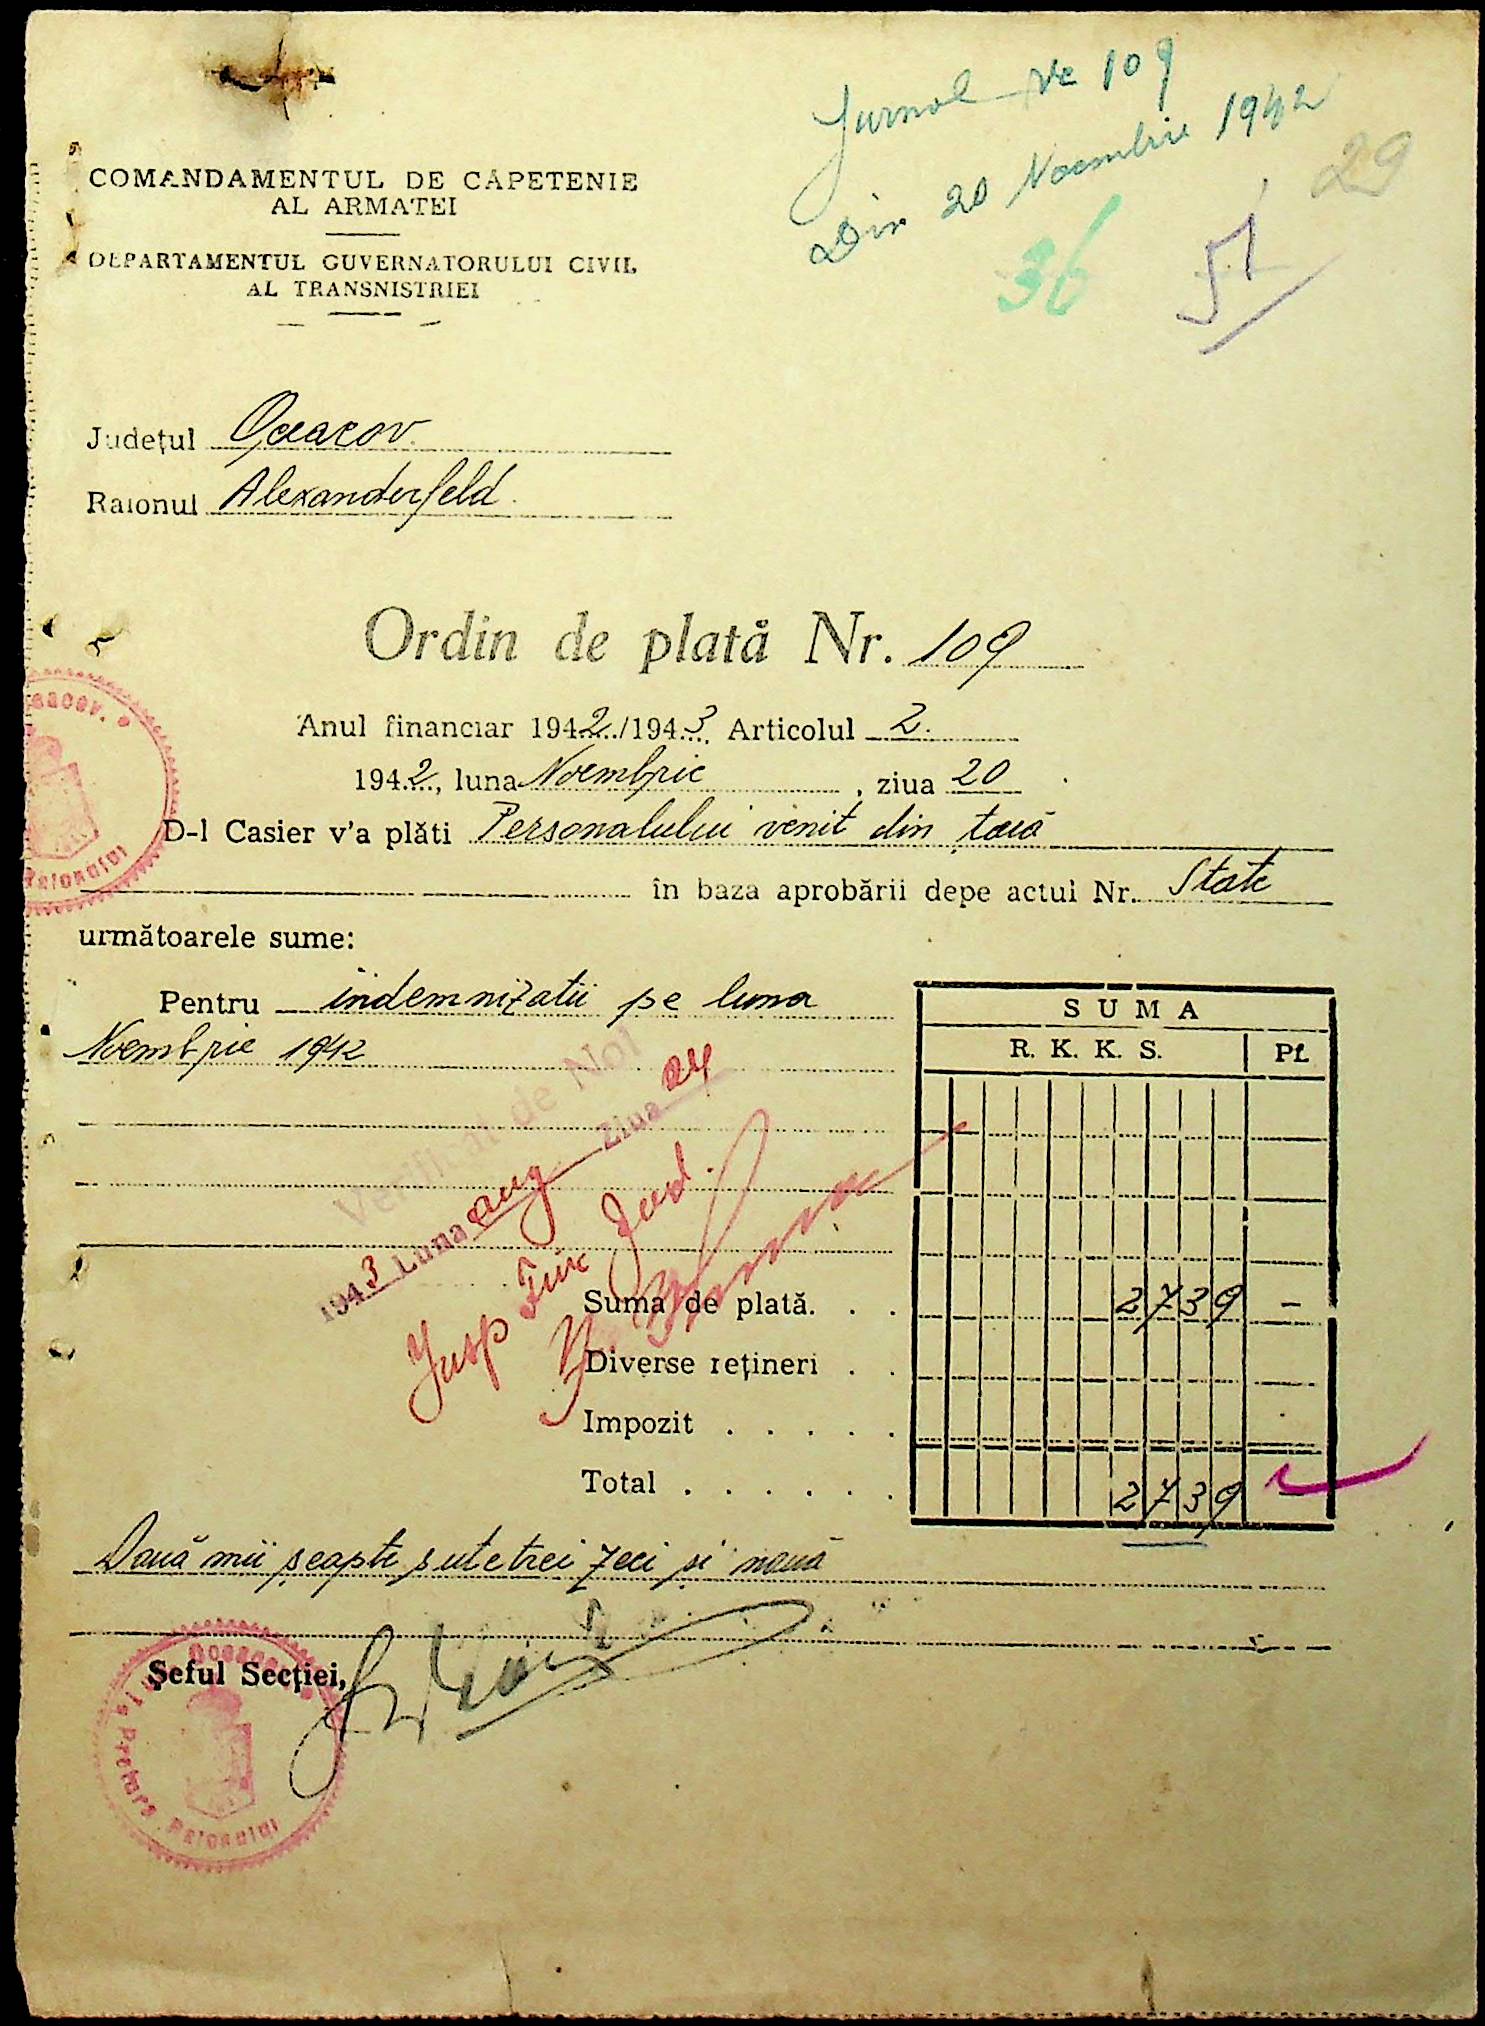 Jurnal Nr 109
Din 20 Noembrie 1942
29
36
51
COMANDAMENTUL DE CAPETENIE
AL ARMATEI
DEPARTAMENTUL GUVERNATORULUI CIVIL
AL TRANSNISTRIEI
Județul Oceacov
Raionul Alexanderfeld.
Ordin de plată Nr. 109
Anul financiar 1942./1943. Articolul 2.
1942., luna Noembrie, ziua 20
D-l Casier v'a plăti Personalului venit din țară
în baza aprobării depe actul Nr. State
următoarele sume:
Pentru indemnizatii pe luna
Noembrie 1942
SUMA
R. K. K. S. Pf.
Verificat de Noi
1943 Luna aug Ziua 24
Insp Fin Jud.
Suma de plată. . . 2739 –
Diverse rețineri . .
Impozit . . . . .
Total . . . . . . 2739 –
Două mii șeapte sute trei zeci și nouă
Șeful Secției,
Pretura Raionului